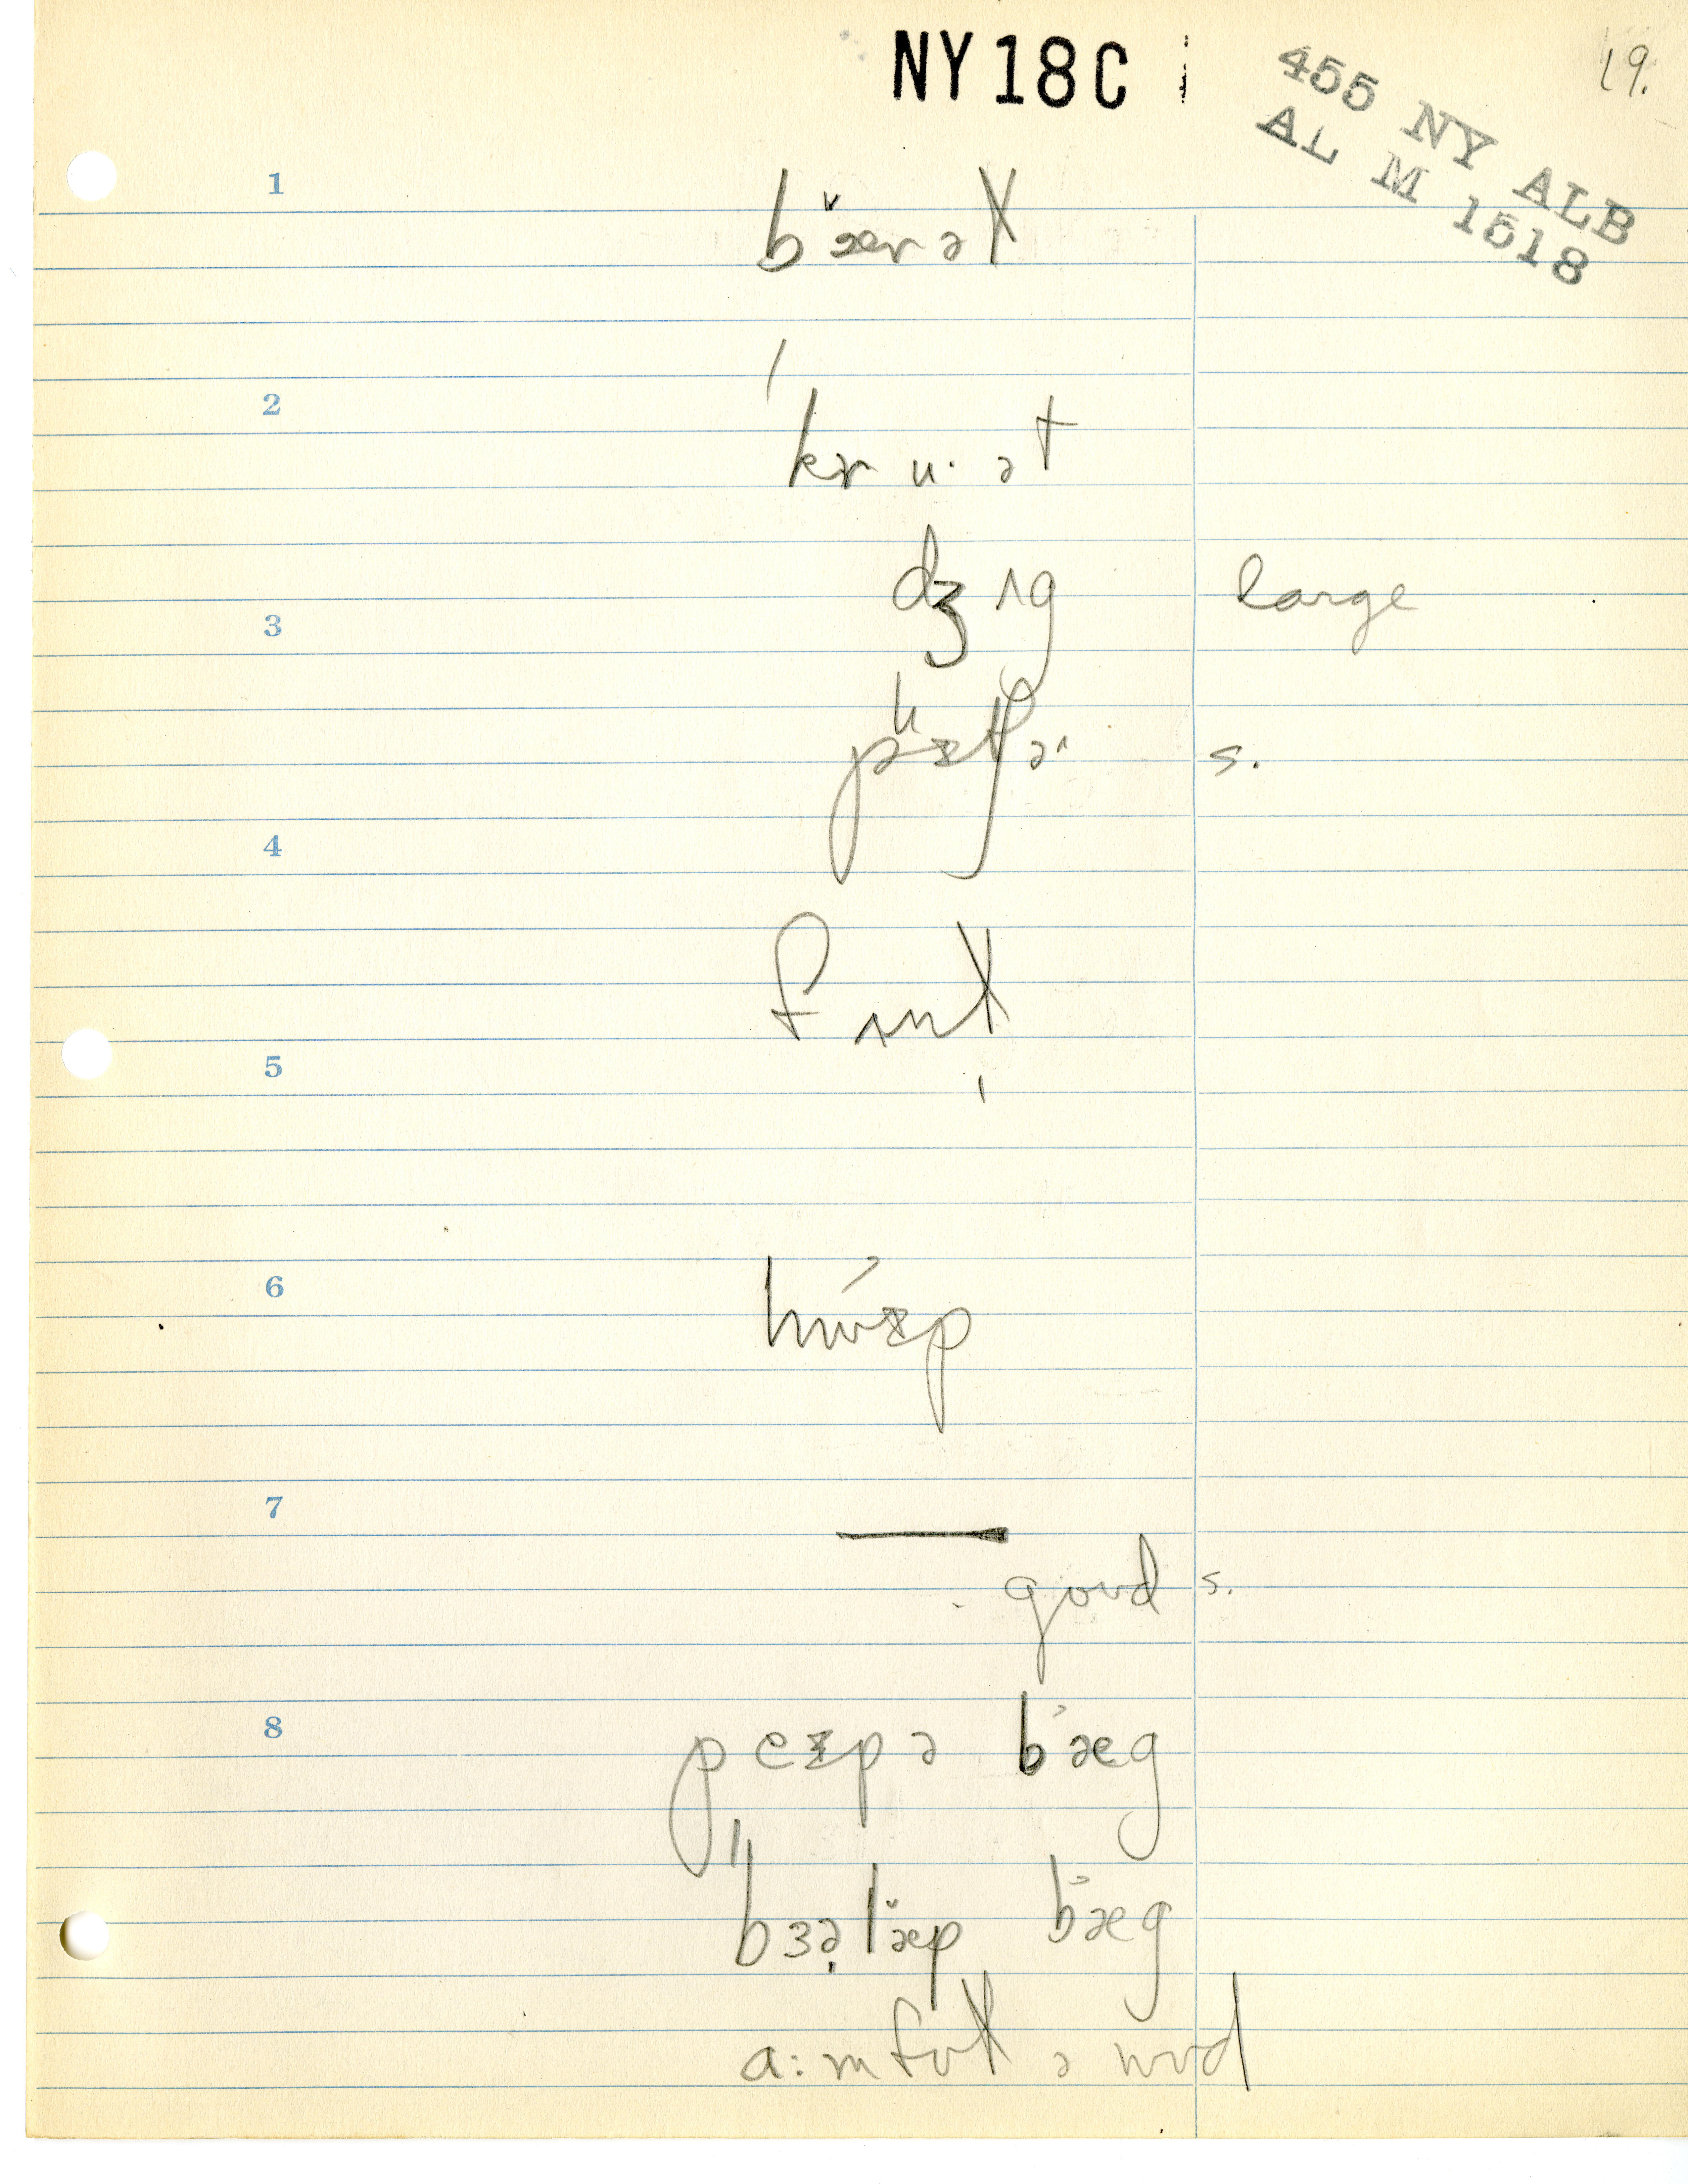 NY18C
455 NY ALB
AL M 1518
19.
1
bæ̌rəl
2
kruˑət
dʒʌg large
3
s.
4
fʌnl
5
6
hwɪp
7
—
good s.
8
peɪpə bæg
bɜələ̌p bæg
a:mfʊl ə wʊd